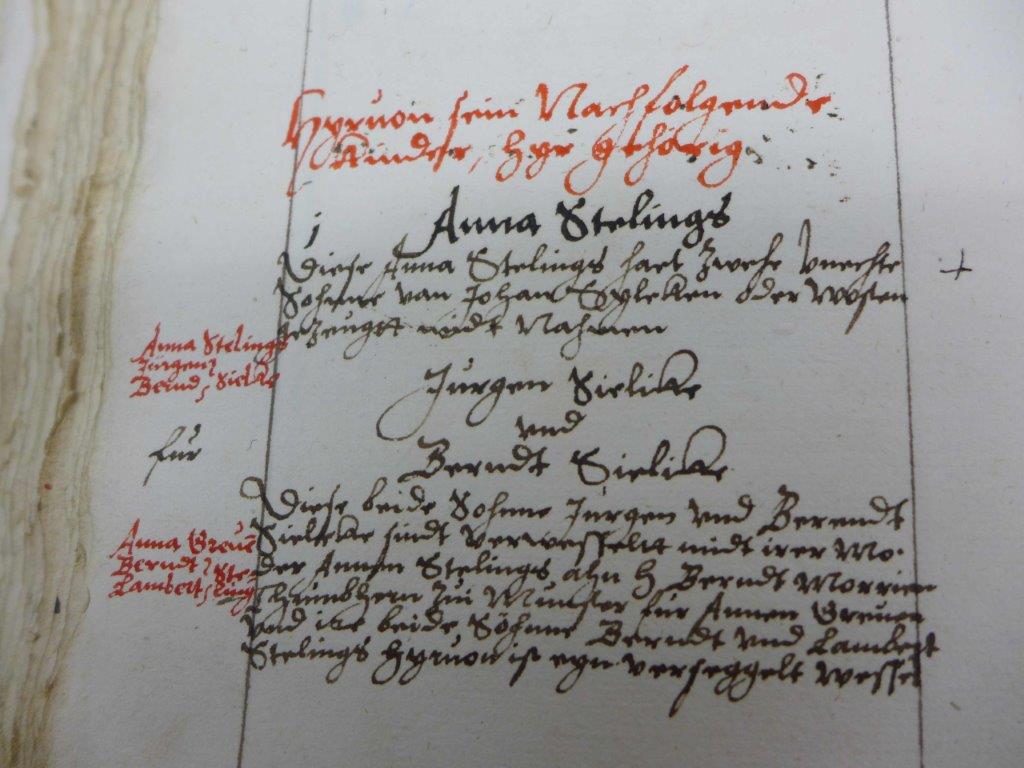 Hyruon sein Nachfolgende
Kinder, hyr gehörig.
1 Anna Stelings
Diese Anna Stelings haet zwehe vnechte +
Sohnne van Johan Syleken oder Wosten
gezeugtt midt Nahmen
Anna Stelings
Jurgen
Bernd, Sieleke
Jurgen Sielicke
vnd
für
Berndt Sielicke
Diese beide Sohnne Jurgen vnd Berendt
Sieleke sindt verwesselet midt irer Mo-
der Annen Stelings ahn H Berndt Morrien
Thumbhern zu Munster für Annen Greuen
vnd ire beide Sohnne Berndt vnd Lambert
Stelings hyruon is eyn verseggelt wessel
Anna Greuē
Berndt
Lambert, Ste-
ling